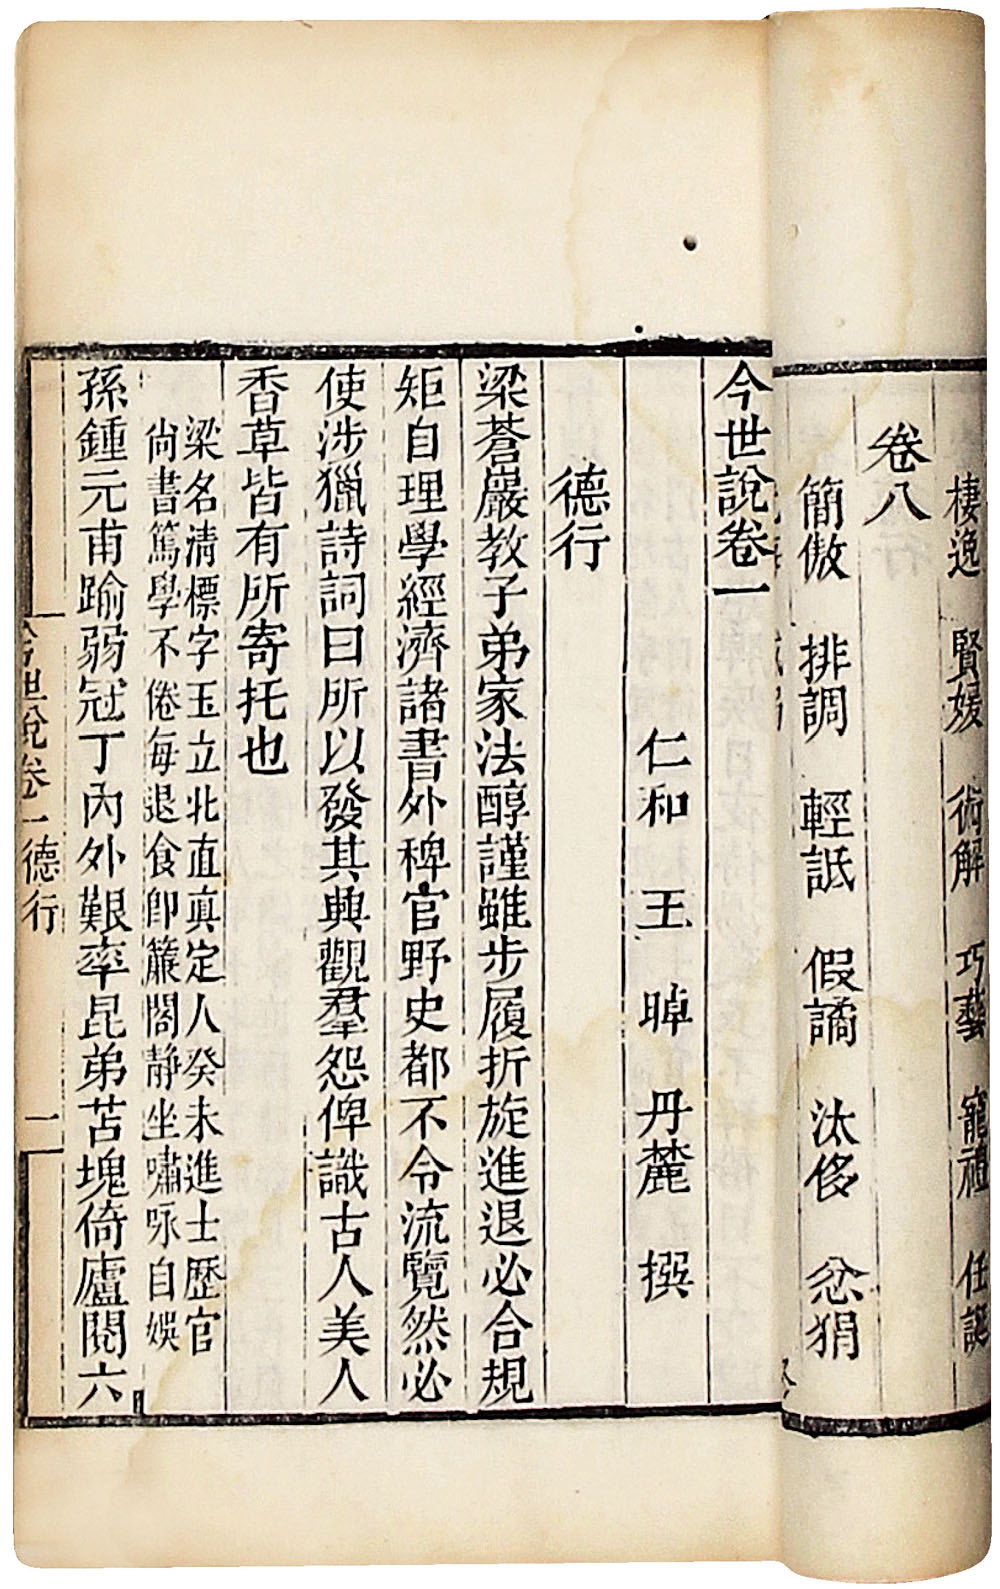 棲逸 賢媛 術解 巧藝 寵禮 任誕
卷八
簡傲 排調 輕詆 假譎 汰侈 忿狷
今世說卷一
仁和 王晫 丹麓 撰
德行
梁蒼巖教子弟家法醇謹雖步履折旋進退必合規
矩自理學經濟諸書外稗官野史都不令流覽然必
使涉獵詩詞曰所以發其興觀羣怨俾識古人美人
香草皆有所寄托也
梁名清標字玉立北直真定人癸未進士歷官
尚書篤學不倦每退食卽簾閣靜坐嘯咏自娛
孫鍾元甫踰弱冠丁內外艱率昆弟苫塊倚廬閱六
今世說卷一 德行 一